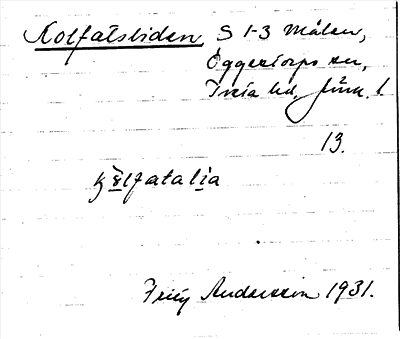 Kolfatsliden, S 1-3 Målen,
Öggestorps sn,
Tveta hd, Jönk. l.
13.
kɷ̀lfatalia
Fritz Andersson 1931.